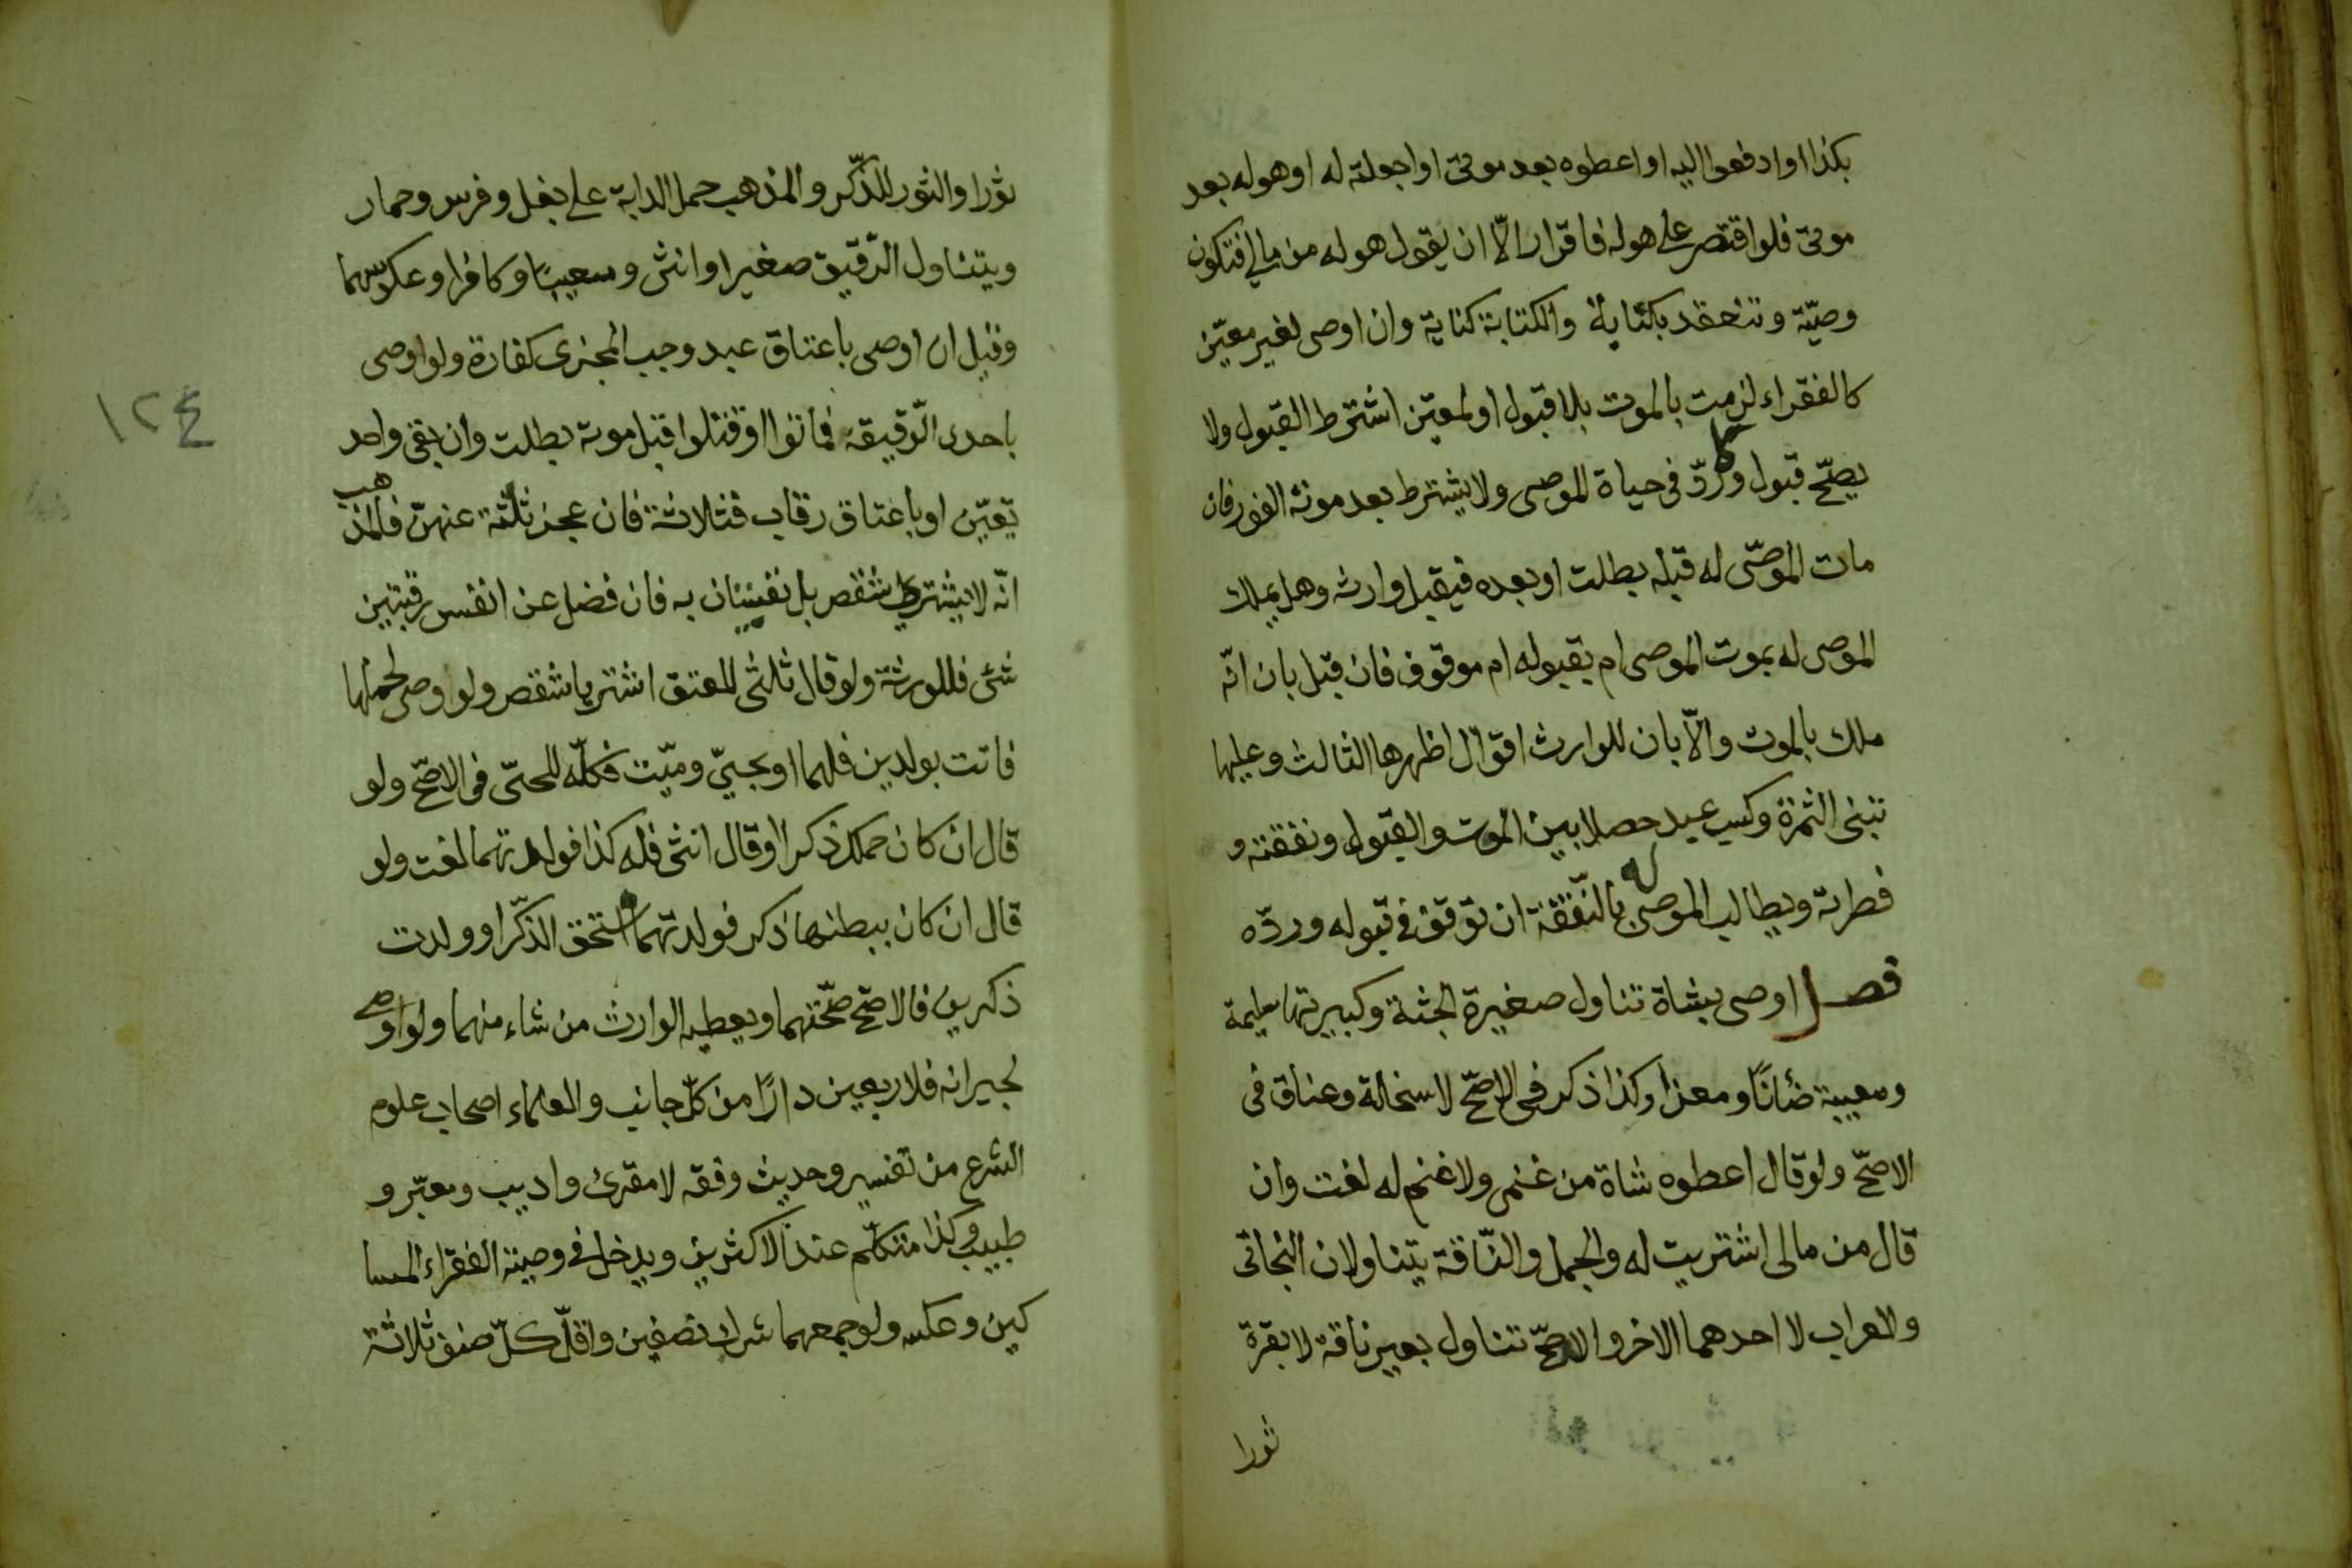 بكذا او ادفعوا اليه او اعطوه بعد موتى او اجعلته له او هو له بعد
موتى فلو اقتصر على هو له فاقرار الّا ان يقول هو له من مالى فتكون
وصيّة وتنعقد بكناية والكتابة كناية وان اوصى لغير معيّن
كالفقراء لزمت بالموت بلا قبول او لمعيّن اشترط القبول ولا
يصحّ قبول ولا ردّ فى حياة الموصى ولا يشترط بعد موته الفور فان
مات الموصّى له قبله بطلت او بعده فيقبل وارثه وهل يملك
الموصى له بموت الموصى ام بقبوله ام موقوف فان قبل بان انّه
ملك بالموت والّا بان للوارث اقوال اظهرها الثالث وعليها
تبنى الثمرة وكسب عبد حصلا بين الموت والقبول ونفقته و
فطرته ويطالب الموصى له بالنّفقة ان توقف فى قبوله وردّه
فصل اوصى بشاة تناول صغيرة الجثة وكبيرتها سليمة
ومعيبة ضأنًا ومعزا وكذا ذكر فى الاصحّ لا سخلة وعناق فى
الاصحّ ولو قال اعطوه شاة من غنمى ولا غنم له لغت وان
قال من مالى اشتريت له والجمل والنّاقة يتناولان البخاتى
والعراب لا احدهما الاخر والاصحّ تناول بعير ناقة لا بقرة
ثورا
ثورا والثور للذّكر والمذهب حمل الدابة على بغل وفرس وحمار
ويتناول الرّقيق صغيرا وانثى ومعيبًا وكافرا وعكوسها
وقيل ان اوصى باعتاق عبد وجب المجزى كفارة ولو اوصى
باحدى الرّقيقه فماتوا او قتلوا قبل موته بطلت وان بقى واحد
تعيّن او باعتاق رقاب فثلاثة فان عجز ثلثه عنهنّ فالمذهب
انّه لا يشترى شقص بل نفيستان به فان فضل عن انفس رقبتين
شئ فللورثة ولو قال ثلثى للعتق اشترى شقص ولو اوصى لحملها
فاتت بولدين فلهما او بحىّ وميّت فكلّه للحىّ فى الاصحّ ولو
قال ان كان حملك ذكرا او قال انثى فله كذا فولدتهما لغت ولو
قال ان كان ببطنها ذكر فولدتهما استحق الذّكر او ولدت
ذكرين فالاصحّ صحّتهما ويعطيه الوارث من شاء منهما ولو اوصى
لجيرانه فلاربعين دارًا من كلّ جانب والعلماء اصحاب علوم
الشرع من تفسير وحديث وفقه لا مقرئ واديب ومعبّر و
طبيب وكذا متكلّم عند الاكثرين ويدخل فى وصية الفقراء المسا
كين وعكسه ولو جمعهما شرك نصفين واقلّ كلّ صنف ثلاثة
١٢٤